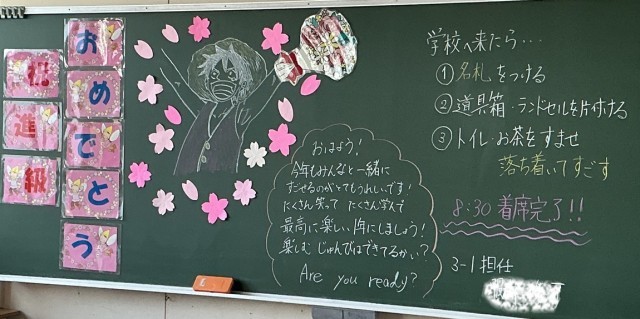 祝
進
級
おめでとう
おはよう!
今年もみんなと一緒に
すごせるのがとてもうれしいです!
たくさん笑って たくさん学んで
最高に楽しい1年にしましょう!
楽しむ じゅんびはできてるかい?
Are you ready?
学校へ来たら…
①名札をつける
②道具箱・ランドセルを片付ける
③トイレ・お茶をすませ
落ち着いてすごす
8:30 着席完了!!
3-1 担任